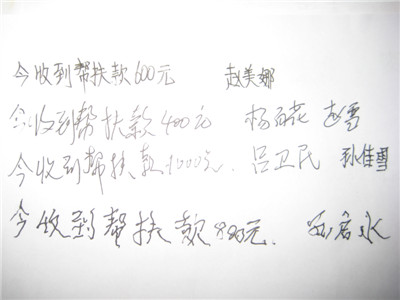 今收到帮扶款600元 赵美娜
今收到帮扶款400元 杨 花 赵雪
今收到帮扶款1000元. 吕卫民 孙佳雪
今收到帮扶款800元. 永